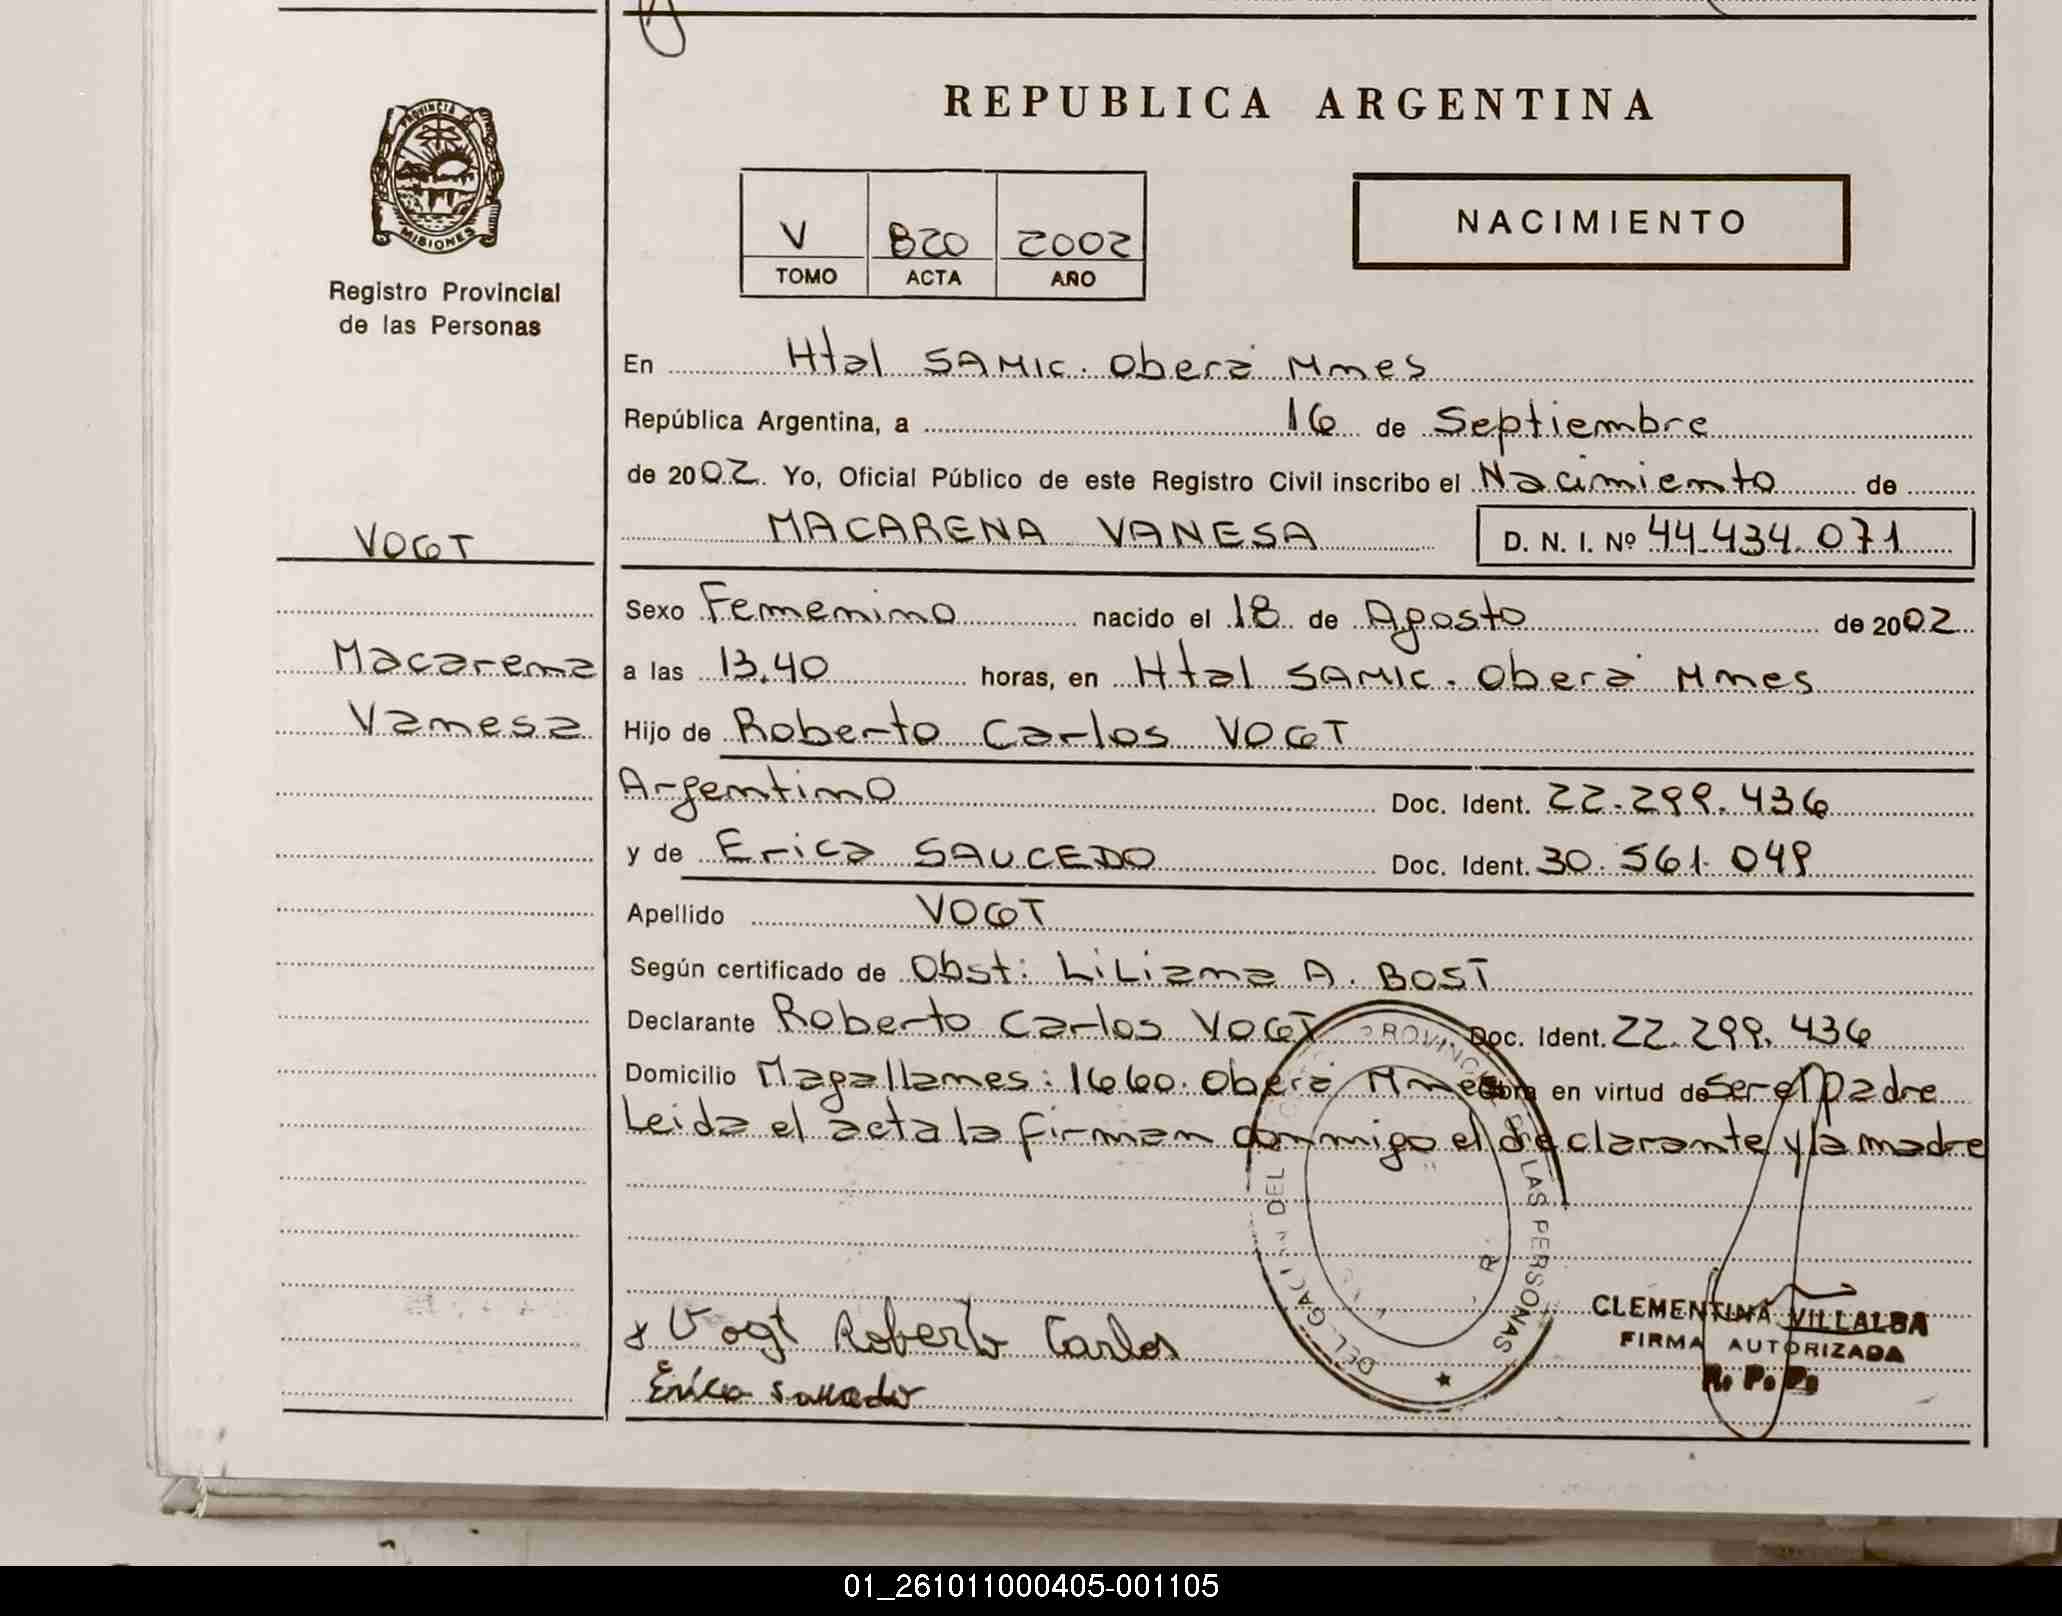 REPUBLICA ARGENTINA
PROVINCIA DE
MISIONES
Registro Provincial
de las Personas
V B20 2002
TOMO ACTA AÑO
NACIMIENTO
En Htal SAMIC. Oberá Mnes
República Argentina, a 16 de Septiembre
de 2002. Yo, Oficial Público de este Registro Civil inscribo el Nacimiento de
MACARENA VANESA D. N. I. Nº 44.434.071
VOGT
Macarena
Vanesa
Sexo Femenino nacido el 18 de Agosto de 2002
a las 13.40 horas, en Htal SAMIC. Oberá Mnes
Hijo de Roberto Carlos VOGT
Argentino Doc. Ident. 22.299.436
y de Erica SAUCEDO Doc. Ident. 30.561.049
Apellido VOGT
Según certificado de Obst: LiLiana A. BOST
Declarante Roberto Carlos VOGT Doc. Ident. 22.299.436
Domicilio Magallanes: 1660. Oberá Mnes Obra en virtud de ser el padre
Leida el acta la firman conmigo el declarante y la madre
PROVINCIAL DE LAS PERSONAS
Vogt Roberto Carlos
Erica Saucedo
CLEMENTINA VILLALBA
FIRMA AUTORIZADA
R. P. P.
01_261011000405-001105